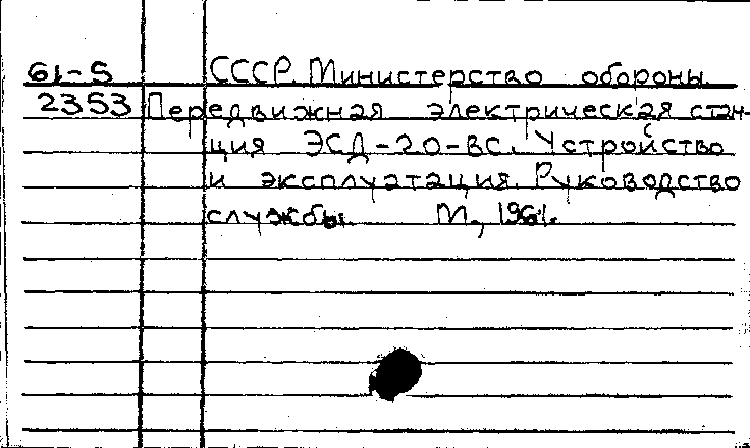 61-5 СССР. Министерство обороны
2353 Передвижная электрическая стан-
ция ЭСД-20-ВС. Устройство
и эксплуатация. Руководство
службы. М., 1961.